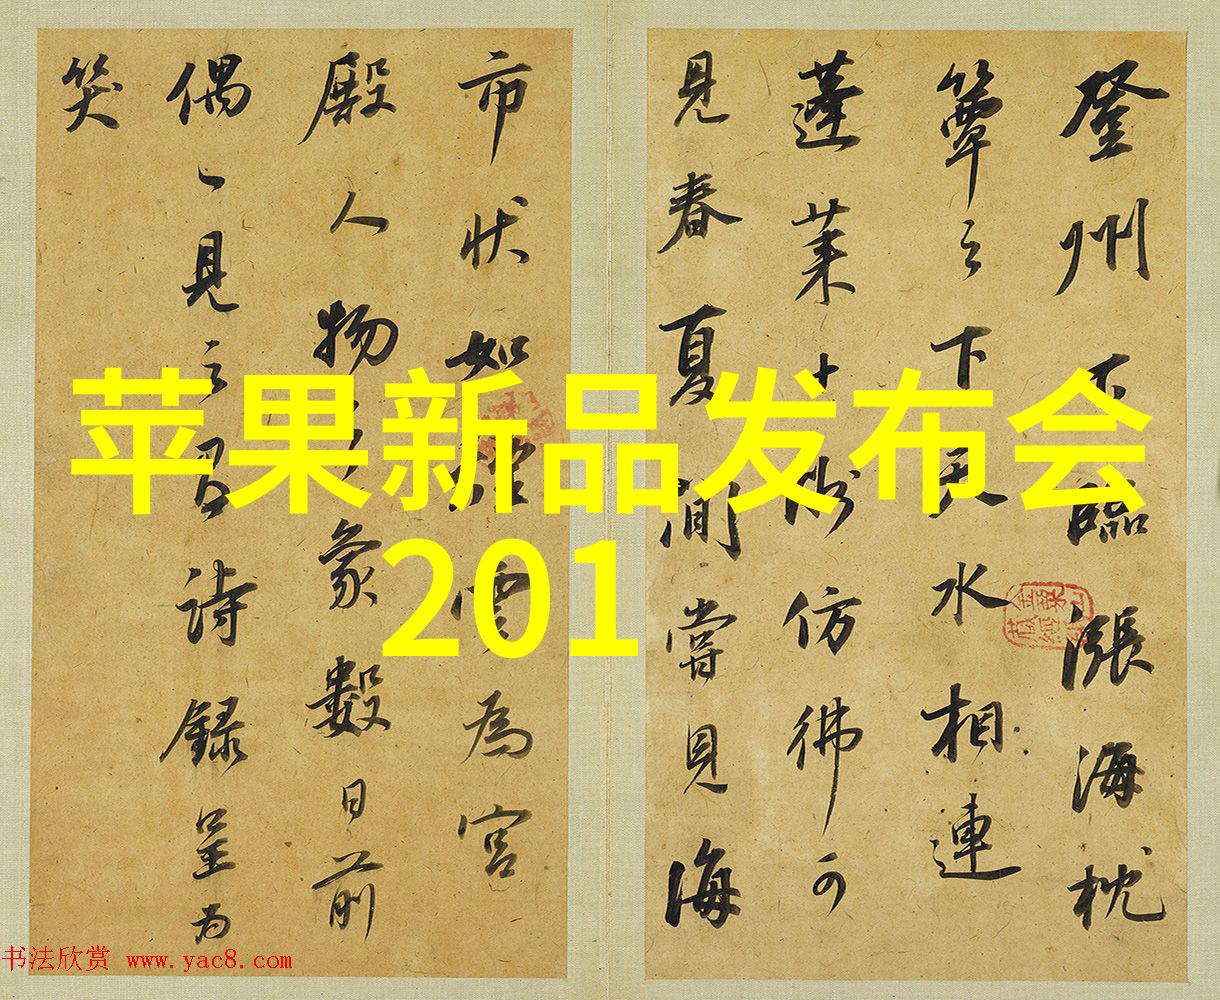 苹果新品发布会
201
登州下臨漲海枕
簟之下天水相連
蓬莱十洲仿彿可
見春夏間嘗見海
市状如煙雲為宮
殿人物之象數日前
偶一見之有詩録呈為
笑
书法欣赏 www.yac8.com